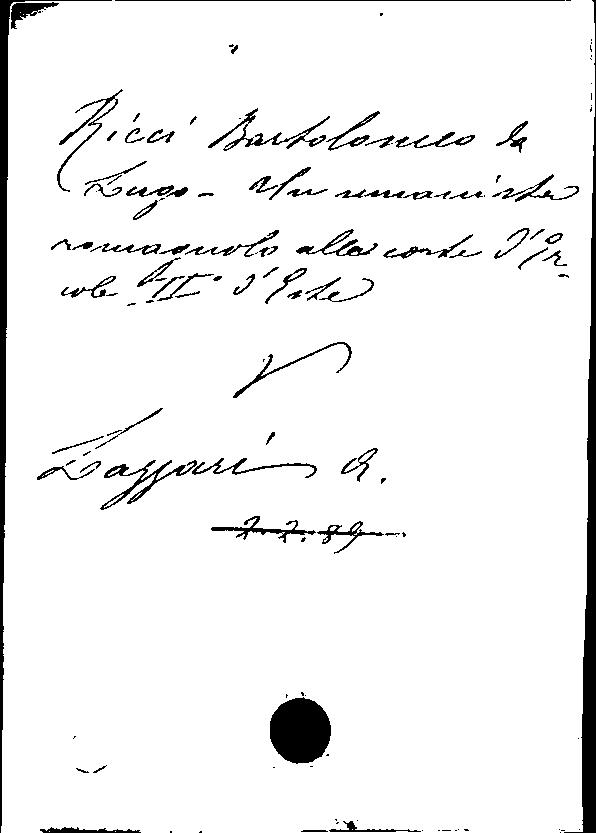 Ricci Bartolomeo da
Lugo - Un umanista
romagnolo alla corte d'Er-
cole II° d'Este
V
Lazzari A.
2.2.89